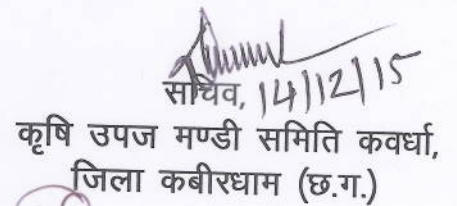 सचिव, 14/12/15
कृषि उपज मण्डी समिति कवर्धा,
जिला कबीरधाम (छ.ग.)